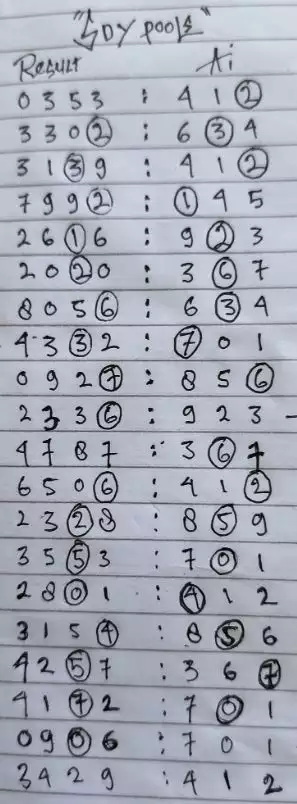 "SDY pools"
Result Ai
0 3 5 3 : 4 1 2
3 3 0 2 : 6 3 4
3 1 3 9 : 4 1 2
7 9 9 2 : 1 4 5
2 6 1 6 : 9 2 3
2 0 2 0 : 3 6 7
8 0 5 6 : 6 3 4
4 3 3 2 : 7 0 1
0 9 2 7 : 8 5 6
2 3 3 6 : 9 2 3 -
4 7 8 7 : 3 6 7
6 5 0 6 : 4 1 2
2 3 2 8 : 8 5 9
3 5 5 3 : 7 0 1
2 8 0 1 : 4 1 2
3 1 5 4 : 8 5 6
4 2 5 7 : 3 6 7
4 1 7 2 : 7 0 1
0 9 0 6 : 7 0 1
3 4 2 9 : 4 1 2